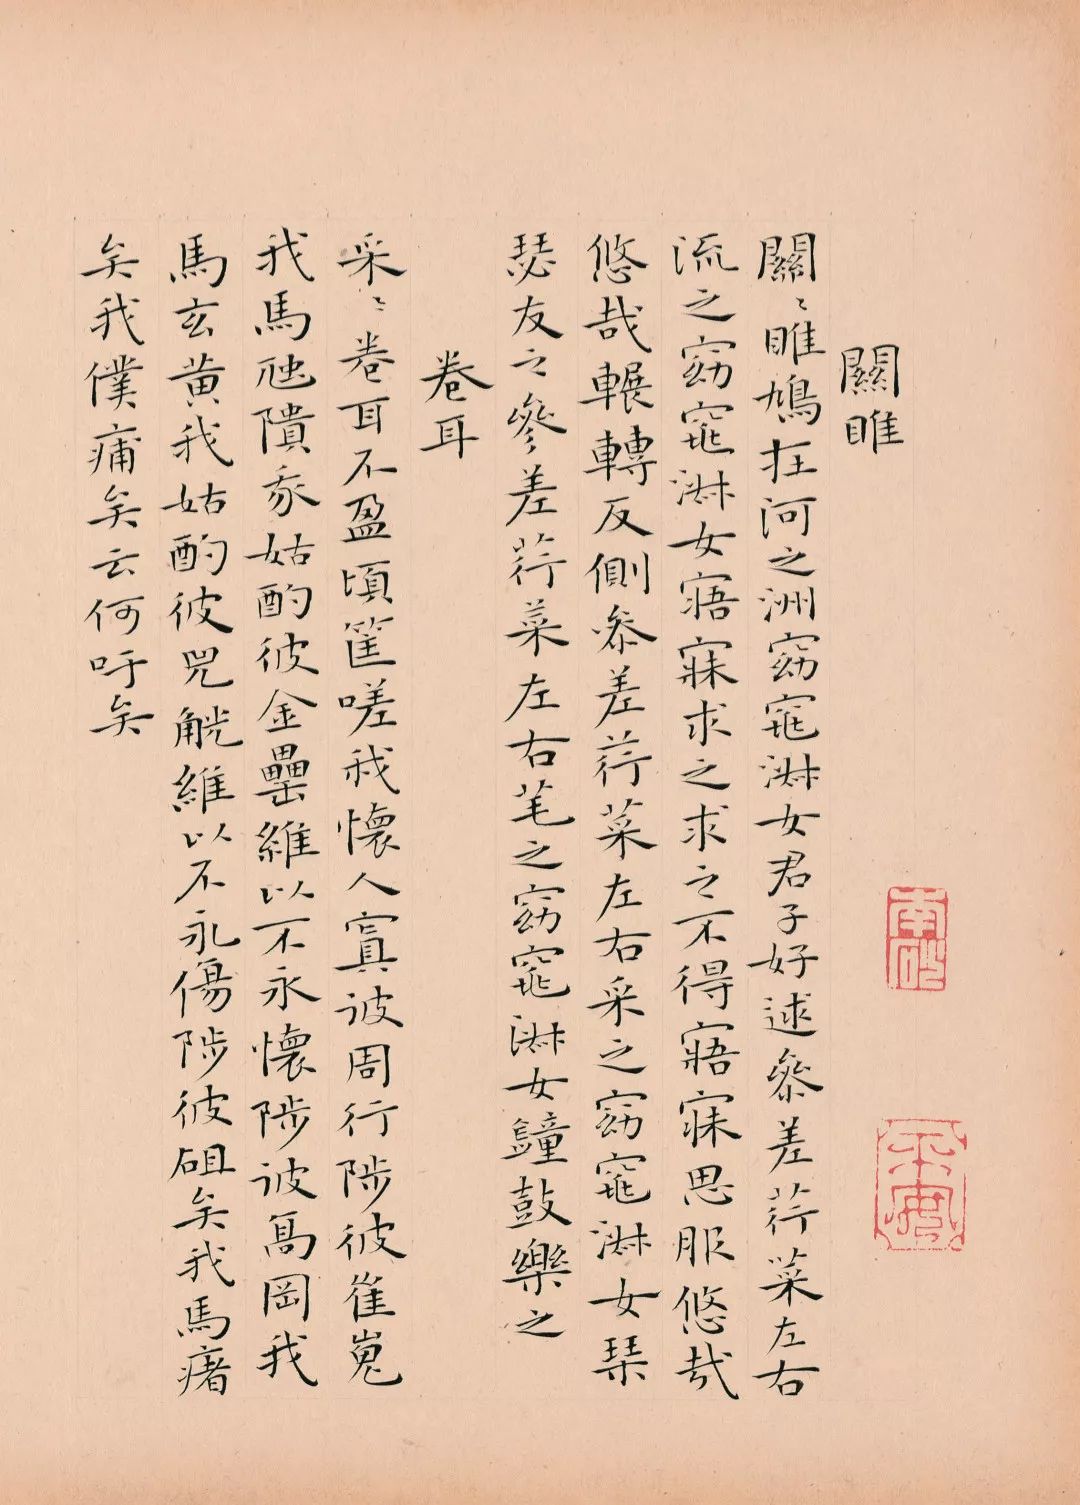 關雎
關〻雎鳩在河之洲窈窕淑女君子好逑參差荇菜左右
流之窈窕淑女寤寐求之求之不得寤寐思服悠哉
悠哉輾轉反側參差荇菜左右采之窈窕淑女琴
瑟友之參差荇菜左右芼之窈窕淑女鐘鼓樂之
卷耳
采〻卷耳不盈頃筐嗟我懷人寘彼周行陟彼崔嵬
我馬虺隤我姑酌彼金罍維以不永懷陟彼高岡我
馬玄黃我姑酌彼兕觥維以不永傷陟彼砠矣我馬瘏
矣我僕痡矣云何吁矣